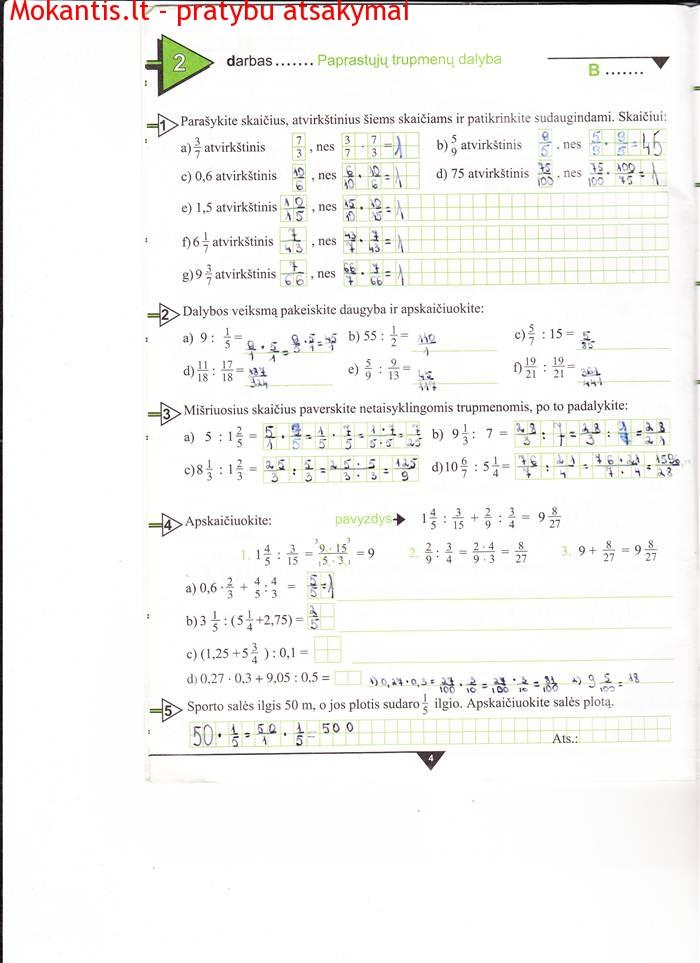 Mokantis.lt - pratybu atsakymai
2 darbas ....... Paprastųjų trupmenų dalyba
B .......
1 Parašykite skaičius, atvirkštinius šiems skaičiams ir patikrinkite sudaugindami. Skaičiui:
a) 3/7 atvirkštinis 7/3 , nes 3/7 · 7/3 = 1 b) 5/9 atvirkštinis 9/5 , nes 5/9 · 9/5 = 45
c) 0,6 atvirkštinis 10/6 , nes 6/10 · 10/6 = 1 d) 75 atvirkštinis 75/100 , nes 75/100 · 100/75 = 1
e) 1,5 atvirkštinis 10/15 , nes 15/10 · 10/15 = 1
f) 6 1/7 atvirkštinis 7/43 , nes 43/7 · 7/43 = 1
g) 9 3/7 atvirkštinis 7/66 , nes 66/7 · 7/66 = 1
2 Dalybos veiksmą pakeiskite daugyba ir apskaičiuokite:
a) 9 : 1/5 = 9/1 · 5/1 = 9·5/1 = 45/1 b) 55 : 1/2 = 110/1 c) 5/7 : 15 =
d) 11/18 : 17/18 = e) 5/9 : 9/13 = f) 19/21 : 19/21 = 361/441
3 Mišriuosius skaičius paverskite netaisyklingomis trupmenomis, po to padalykite:
a) 5 : 1 2/5 = 5/1 · = 1/5 · 7/5 = 1·7/5·5 = 7/25 b) 9 1/3 : 7 = 28/3 : 7 = 28/3 : 1/7 = 28/21
c) 8 1/3 : 1 2/3 = 25/3 : 5/3 = 25·5/3·3 = 125/9 d) 10 6/7 : 5 1/4 = 76/7 : 21/4 = 76·21/7·4 = 1596/28
4 Apskaičiuokite: pavyzdys 1 4/5 : 3/15 + 2/9 : 3/4 = 9 8/27
1. 1 4/5 : 3/15 = 9·15/5·3 = 9 2. 2/9 : 3/4 = 2·4/9·3 = 8/27 3. 9 + 8/27 = 9 8/27
a) 0,6 · 2/3 + 4/5 : 4/3 = 5/5 = 1
b) 3 1/5 : (5 1/4 + 2,75) = 2/5
c) (1,25 + 5 3/4 ) : 0,1 =
d) 0,27 · 0,3 + 9,05 : 0,5 = 1) 0,27 · 0,3 = 27/100 · 3/10 = 27/100 · 3/10 = 81/100 2) 9 5/100 = 18
5 Sporto salės ilgis 50 m, o jos plotis sudaro 1/5 ilgio. Apskaičiuokite salės plotą.
50 · 1/5 = 50/1 · 1/5 = 500
Ats.:
4